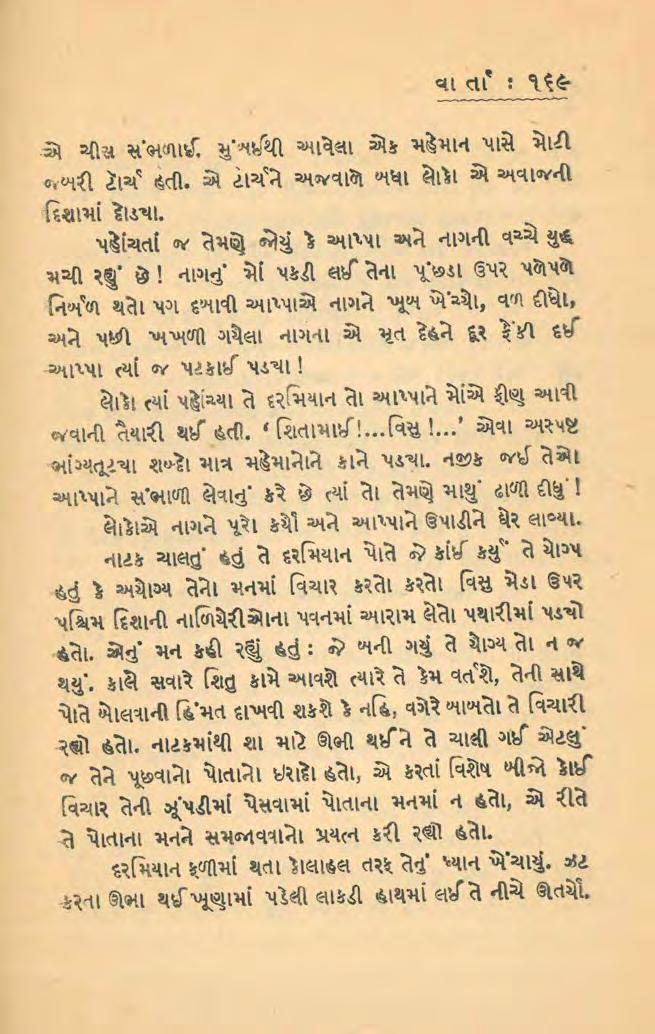 વાર્તા : ૧૬૯
એ ચીસ સંભળાઈ. મુંબઈથી આવેલા એક મહેમાન પાસે મોટી
જબરી ટૉર્ચ હતી. એ ટાર્ચને અજવાળે બધા લોકો એ અવાજની
દિશામાં દોડયા.
પહોંચતાં જ તેમણે જોયું કે આપ્પા અને નાગની વચ્ચે યુદ્ધ
મચી રહ્યું છે! નાગનું મોં પકડી લઈ તેના પૂંછડા ઉપર પળેપળે
નિર્બળ થતો પગ દબાવી આપ્પાએ નાગને ખૂબ ખેંચ્યો, વળ દીધો,
અને પછી ખખળી ગયેલા નાગના એ મૃત દેહને દૂર ફેંકી દઈ
આપ્પા ત્યાં જ પટકાઈ પડયા!
લોકો ત્યાં પહોંચ્યા તે દરમિયાન તો આપ્પાને મોંએ ફીણ આવી
જવાની તૈયારી થઈ હતી. ‘શિતામાઈ!...વિસુ!...’ એવા અસ્પષ્ટ
ભાંગ્યતૂટયા શબ્દો માત્ર મહેમાનોને કાને પડયા. નજીક જઈ તેઓ
આપ્પાને સંભાળી લેવાનું કરે છે ત્યાં તો તેમણે માથું ઢાળી દીધું!
લોકોએ નાગને પૂરો કર્યો અને આપ્પાને ઉપાડીને ઘેર લાવ્યા.
નાટક ચાલતું હતું તે દરમિયાન પોતે જે કાંઈ કર્યું તે યોગ્ય
હતું કે અયોગ્ય તેનો મનમાં વિચાર કરતો કરતો વિસુ મેડા ઉપર
પશ્ચિમ દિશાની નાળિયેરીઓના પવનમાં આરામ લેતો પથારીમાં પડયો
હતો. એનું મન કહી રહ્યું હતું : જે બની ગયું તે યોગ્ય તો ન જ
થયું. કાલે સવારે શિતુ કામે આવશે ત્યારે તે કેમ વર્તશે, તેની સાથે
પોતે બોલવાની હિંમત દાખવી શકશે કે નહિ, વગેરે બાબતો તે વિચારી
રહ્યો હતો. નાટકમાંથી શા માટે ઊભી થઈને તે ચાલી ગઈ એટલું
જ તેને પૂછવાનો પોતાનો ઇરાદો હતો, એ કરતાં વિશેષ બીજો કોઈ
વિચાર તેની ઝૂંપડીમાં પેસવામાં પોતાના મનમાં ન હતો, એ રીતે
તે પોતાના મનને સમજાવવાનો પ્રયત્ન કરી રહ્યો હતો.
દરમિયાન ફળીમાં થતા કોલાહલ તરફ તેનું ધ્યાન ખેંચાયું. ઝટ
કરતા ઊભા થઈ ખૂણામાં પડેલી લાકડી હાથમાં લઈ તે નીચે ઊતર્યો.